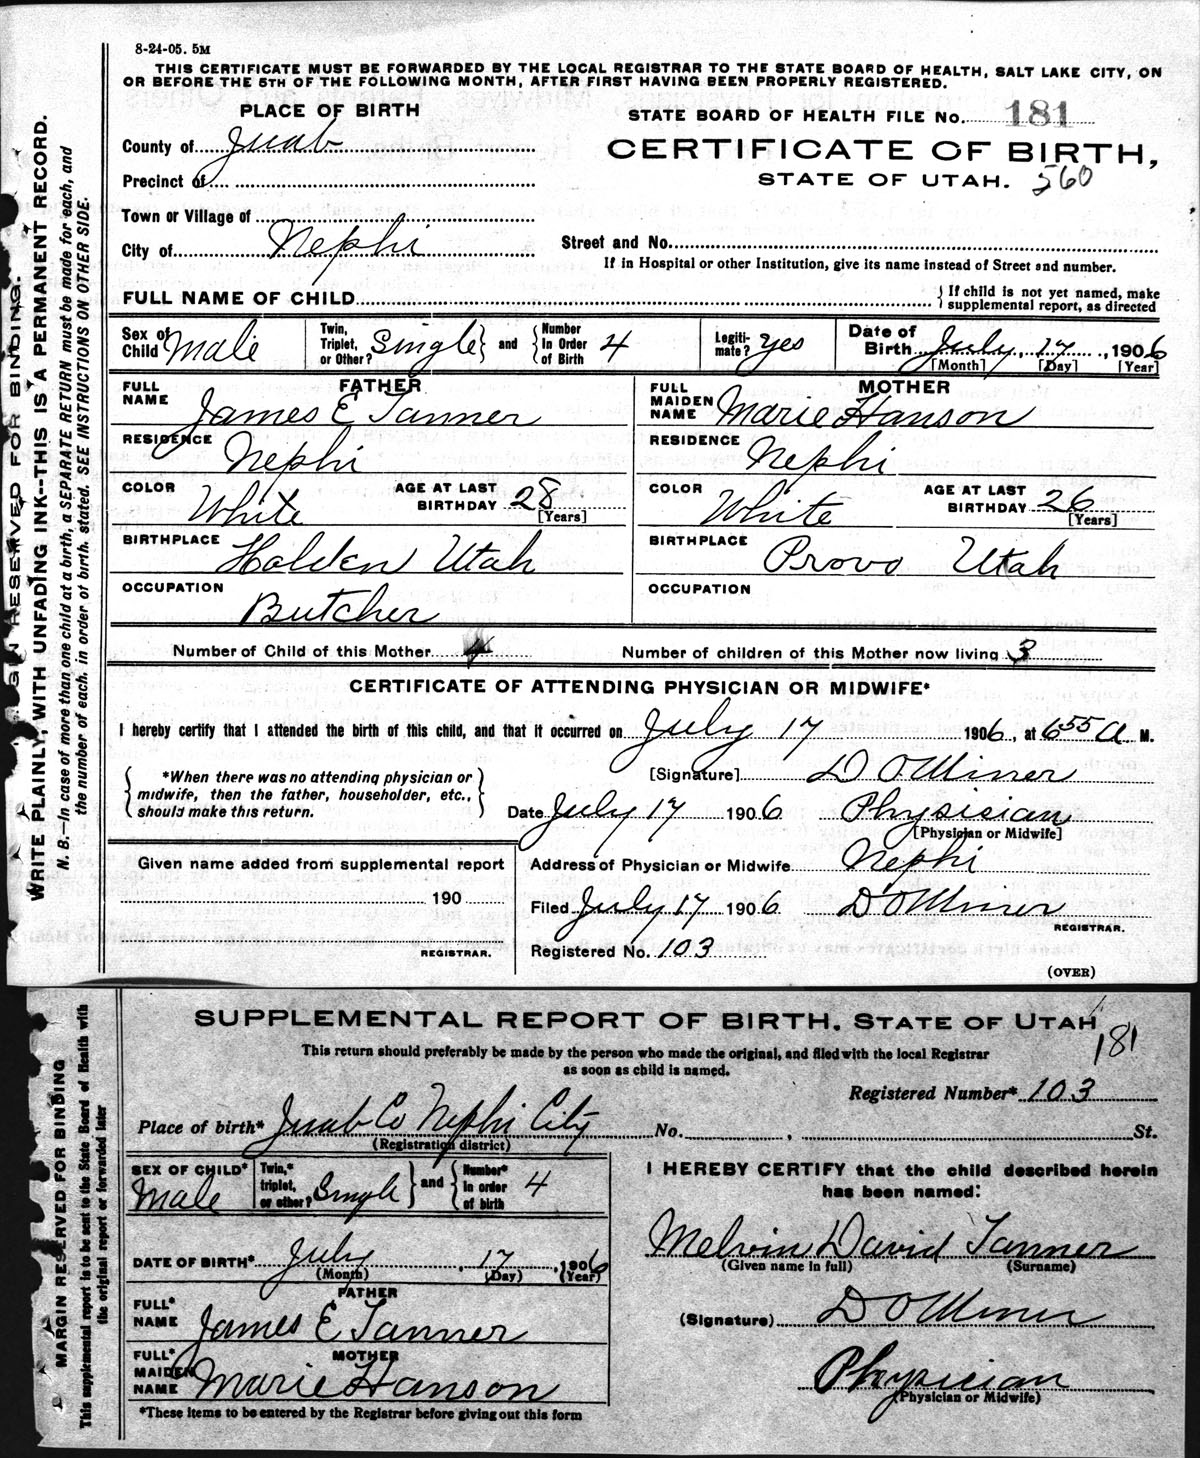 8-24-05. 5M
THIS CERTIFICATE MUST BE FORWARDED BY THE LOCAL REGISTRAR TO THE STATE BOARD OF HEALTH, SALT LAKE CITY, ON
OR BEFORE THE 5TH OF THE FOLLOWING MONTH, AFTER FIRST HAVING BEEN PROPERLY REGISTERED.
PLACE OF BIRTH
STATE BOARD OF HEALTH FILE No. 181
County of Juab
CERTIFICATE OF BIRTH,
Precinct of
STATE OF UTAH. 560
Town or Village of
City of Nephi
Street and No.
If in Hospital or other Institution, give its name instead of Street and number.
FULL NAME OF CHILD
{ If child is not yet named, make
supplemental report, as directed
Sex of Child Male
Twin, Triplet, or Other? Single } and { Number In Order of Birth 4
Legitimate? Yes
Date of Birth July, 17, 1906
[Month] [Day] [Year]
FATHER
MOTHER
FULL NAME James E Tanner
FULL MAIDEN NAME Marie Hanson
RESIDENCE Nephi
RESIDENCE Nephi
COLOR White AGE AT LAST BIRTHDAY 28 [Years]
COLOR White AGE AT LAST BIRTHDAY 26 [Years]
BIRTHPLACE Holden Utah
BIRTHPLACE Provo Utah
OCCUPATION Butcher
OCCUPATION
Number of Child of this Mother 4 Number of children of this Mother now living 3
CERTIFICATE OF ATTENDING PHYSICIAN OR MIDWIFE*
I hereby certify that I attended the birth of this child, and that it occurred on July 17 1906, at 6 55 A M.
{ *When there was no attending physician or
midwife, then the father, householder, etc.,
should make this return. }
[Signature] D O Miner
Date July 17 1906 Physician
[Physician or Midwife]
Given name added from supplemental report
190
REGISTRAR.
Address of Physician or Midwife Nephi
Filed July 17 1906 D O Miner
REGISTRAR.
Registered No. 103
(OVER)
MARGIN RESERVED FOR BINDING.
WRITE PLAINLY, WITH UNFADING INK--THIS IS A PERMANENT RECORD.
N. B.—In case of more than one child at a birth, a SEPARATE RETURN must be made for each, and
the number of each, in order of birth, stated. SEE INSTRUCTIONS ON OTHER SIDE.
SUPPLEMENTAL REPORT OF BIRTH. STATE OF UTAH
181
This return should preferably be made by the person who made the original, and filed with the local Registrar
as soon as child is named.
Registered Number* 103
Place of birth* Juab Co Nephi City No. , St.
(Registration district)
SEX OF CHILD* Male
Twin,* triplet, or other? Single } and { Number* in order of birth 4
I HEREBY CERTIFY that the child described herein
has been named:
DATE OF BIRTH* July, 17, 1906
(Month) (Day) (Year)
Melvin David Tanner
(Given name in full) (Surname)
FATHER
FULL* NAME James E Tanner
(Signature) D O Miner
MOTHER
FULL* MAIDEN NAME Marie Hanson
Physician
(Physician or Midwife)
*These items to be entered by the Registrar before giving out this form
MARGIN RESERVED FOR BINDING
This supplemental report is to be sent to the State Board of Health with
the original report or forwarded later